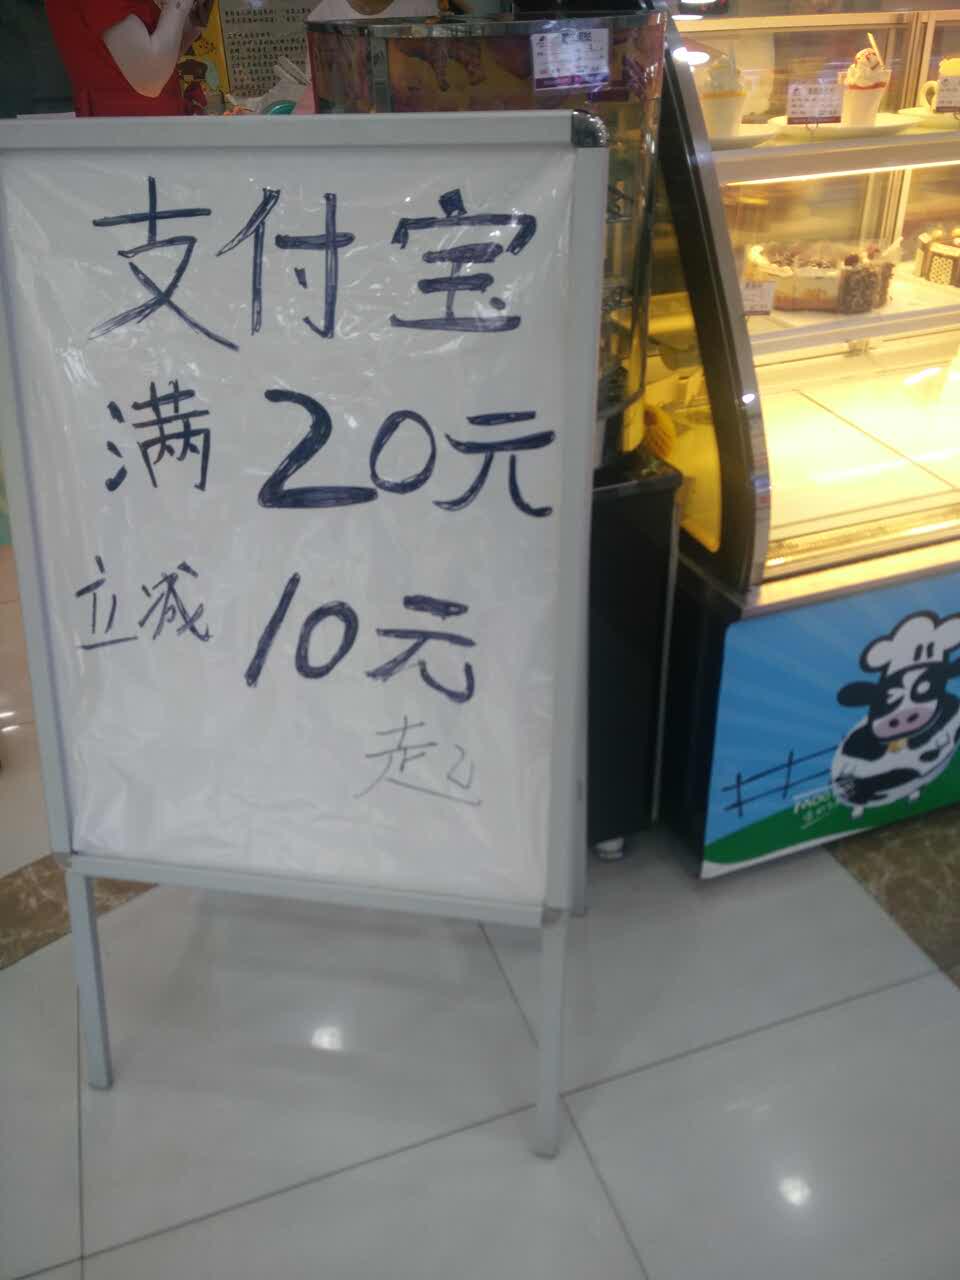 支付宝
满20元
立减10元
起